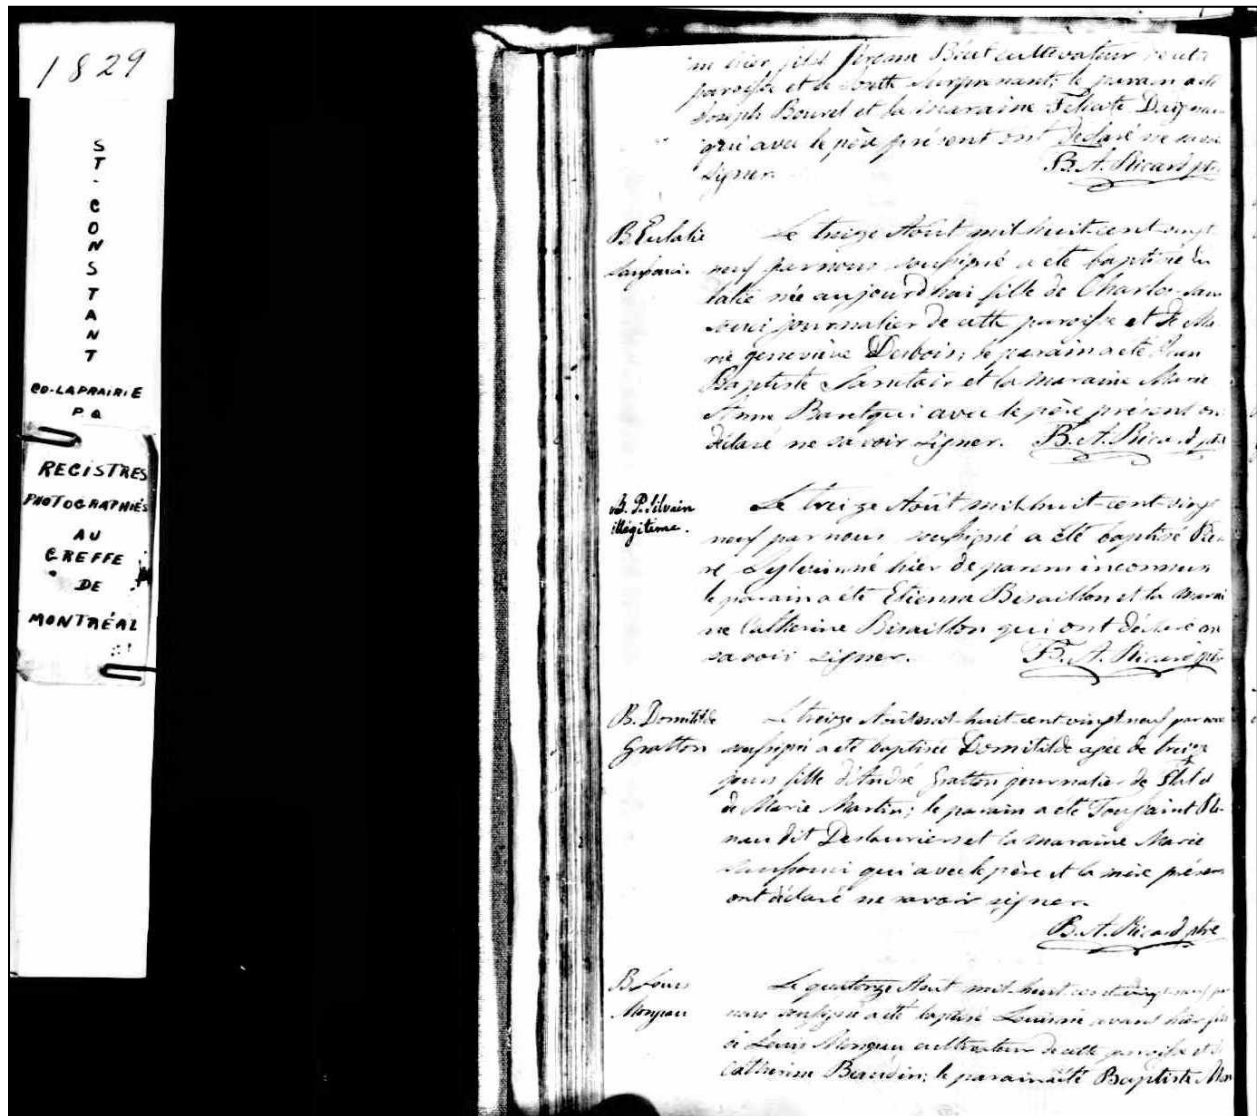 1829
ST-CONSTANT
CO-LAPRAIRIE
P Q
REGISTRES
PHOTOGRAPHIÉS
AU
GREFFE
DE
MONTRÉAL
né hier fils
paroisse et de Surprenant; le parain a été
Joseph et la maraine Felicité
qui avec le père présent ont declaré ne savoir
signer. B. A. Ricard ptre
B. Eulalie
Le treize Août mil-huit-cent-vingt
neuf par nous soussigné a été baptisée Eu
lalie née aujourd'hui fille de Charles San
souci journalier de cette paroisse et de Ma
rie geneviève le parain a été Jean
Baptiste et la maraine Marie
Anne qui avec le père présent on
déclaré ne savoir signer. B. A. Ricard ptre
B. P. Silvain
illégitime.
Le treize Août mil-huit-cent-vingt
neuf par nous soussigné a été baptisé Pier
re né hier de parens inconnus
le parain a été Etienne Bisaillon et la marai
ne Catherine Bisaillon qui ont déclaré ne
savoir signer. B. A. Ricard ptre
B. Domitilde
Gratton
Le treize Août mil-huit-cent-vingt neuf par nous
soussigné a été baptisée Domitilde agée de treize
jours fille d'André Gratton journalier de
de Marie Martin; le parain a été Toussaint
nau dit Deslauriers et la maraine Marie
Sansouci qui avec le père et la mère présens
ont déclaré ne savoir signer.
B. A. Ricard ptre
B. Louis
Mongeau
Le quatorze Août mil-huit-cent-vingt-neuf par
nous soussigné a été baptisé Louis né avant hier fils
de Louis Mongeau cultivateur de cette paroisse et de
Catherine Beaudin; le parain a été Baptiste Mon